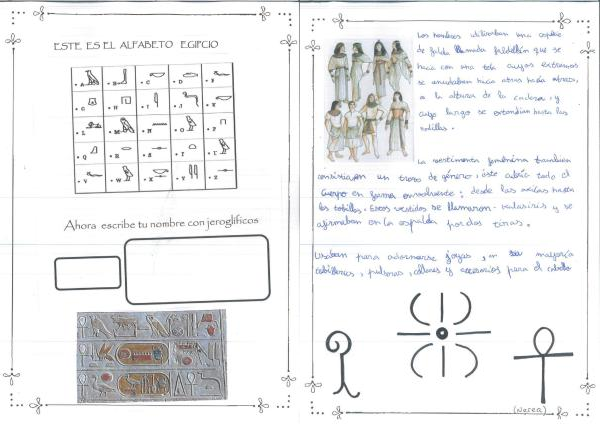 ESTE ES EL ALFABETO EGIPCIO
A B C D F
G H I J K
L M N O P
Q R S T
V W X Y Z
Ahora escribe tu nombre con jeroglíficos
Los hombres utilizaban una especie
de falda llamada faldellín que se
hacía con una tela cuyos extremos
se anudaban hacia atras,
a la altura de la cadera, y
cuyo largo se extendían hasta las
rodillas.
La vestimenta femenina tambien
consistía en un trozo de género, éste cubría todo el
cuerpo en forma envolvente: desde las axilas hasta
los tobillos. Estos vestidos se llamaron kalasiris y se
afirmaban en la espalda por dos tiras.
Usaban para adornarse joyas, en mayoría
pulseras, collares y accesorios para el cabello
(Nerea)